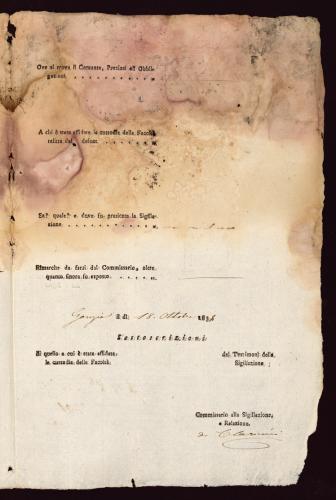 Ove si trova il Contante, Preziosi ed Obbli-
gazioni . . . . . . . . . . .
A chi è stata affidata la custodia della Facoltà
relitta dal defont. . . . . . . . .
Se? quale? e dove fu praticata la Sigilla-
zione . . . . . . . . . . .
Rimarche da farsi dal Commissario, oltre
quanto finora fu esposto. . . . . . .
Gorizia li di 18. Ottobre
Sottoscrizioni
di quello a cui è stata affidata
la custodia della Facoltà.
dei Testimonj della
Sigillazione.
Commissario alla Sigillazione,
e Relazione.